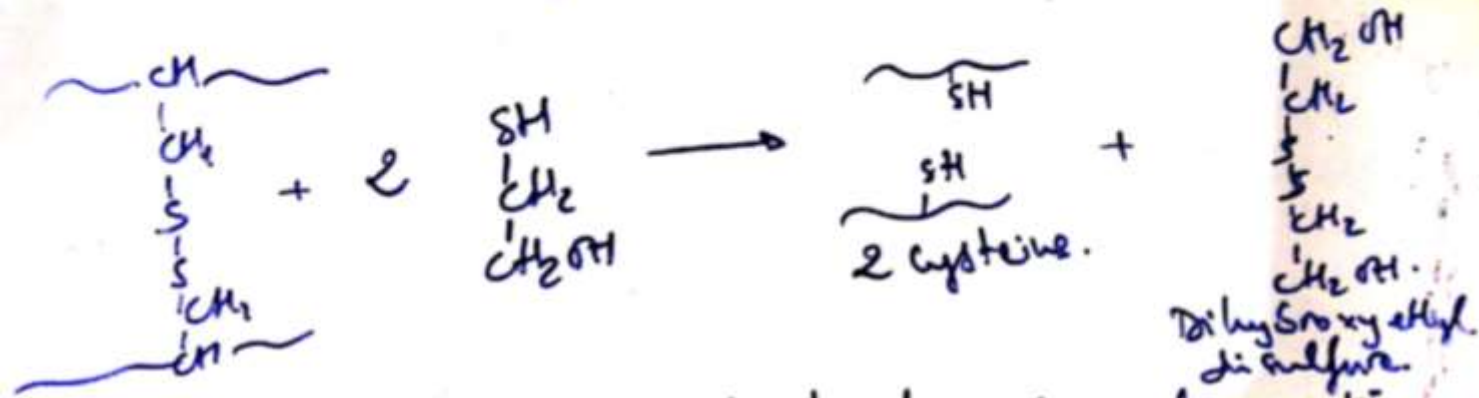 CH
CH2
S
S
CH2
CH
+ 2
SH
CH2
CH2OH
SH
SH
2 Cysteine.
+
CH2OH
CH2
S
S
CH2
CH2OH.
Dihydroxyethyl
disulfure.